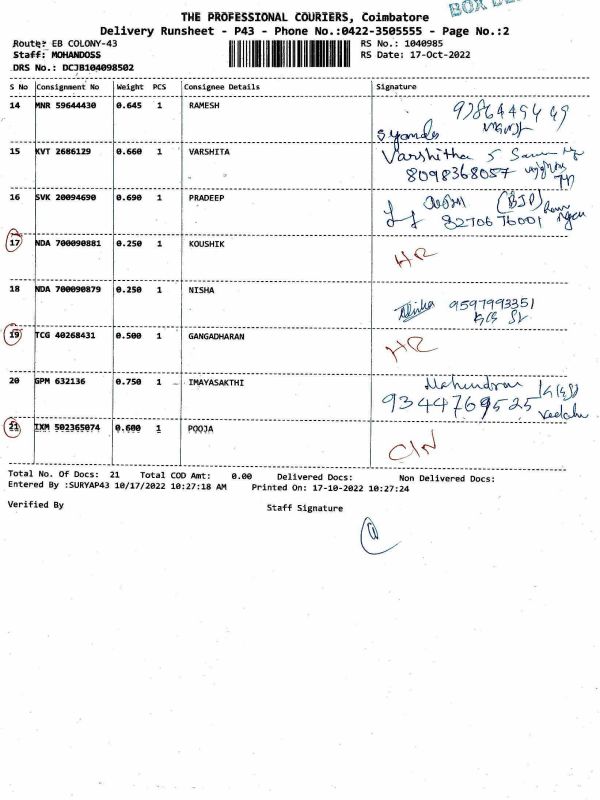 BOX DE
THE PROFESSIONAL COURIERS, Coimbatore
Delivery Runsheet - P43 - Phone No.:0422-3505555 - Page No.:2
Route: EB COLONY-43 RS No.: 1040985
Staff: MOHANDOSS RS Date: 17-Oct-2022
DRS No.: DCJB104098502
S No Consignment No Weight PCS Consignee Details Signature
14 MNR 59644430 0.645 1 RAMESH
15 KVT 2686129 0.660 1 VARSHITA Varshitha S
8098368057
16 SVK 20094690 0.690 1 PRADEEP (BJP)
8270676001
17 NDA 700090881 0.250 1 KOUSHIK HR
18 NDA 700090879 0.250 1 NISHA Nisha 9597993351
19 TCG 40268431 0.500 1 GANGADHARAN HR
20 GPM 632136 0.750 1 IMAYASAKTHI Mahendran
9344769525
21 IXM 502365074 0.600 1 POOJA C/N
Total No. Of Docs: 21 Total COD Amt: 0.00 Delivered Docs: Non Delivered Docs:
Entered By :SURYAP43 10/17/2022 10:27:18 AM Printed On: 17-10-2022 10:27:24
Verified By Staff Signature